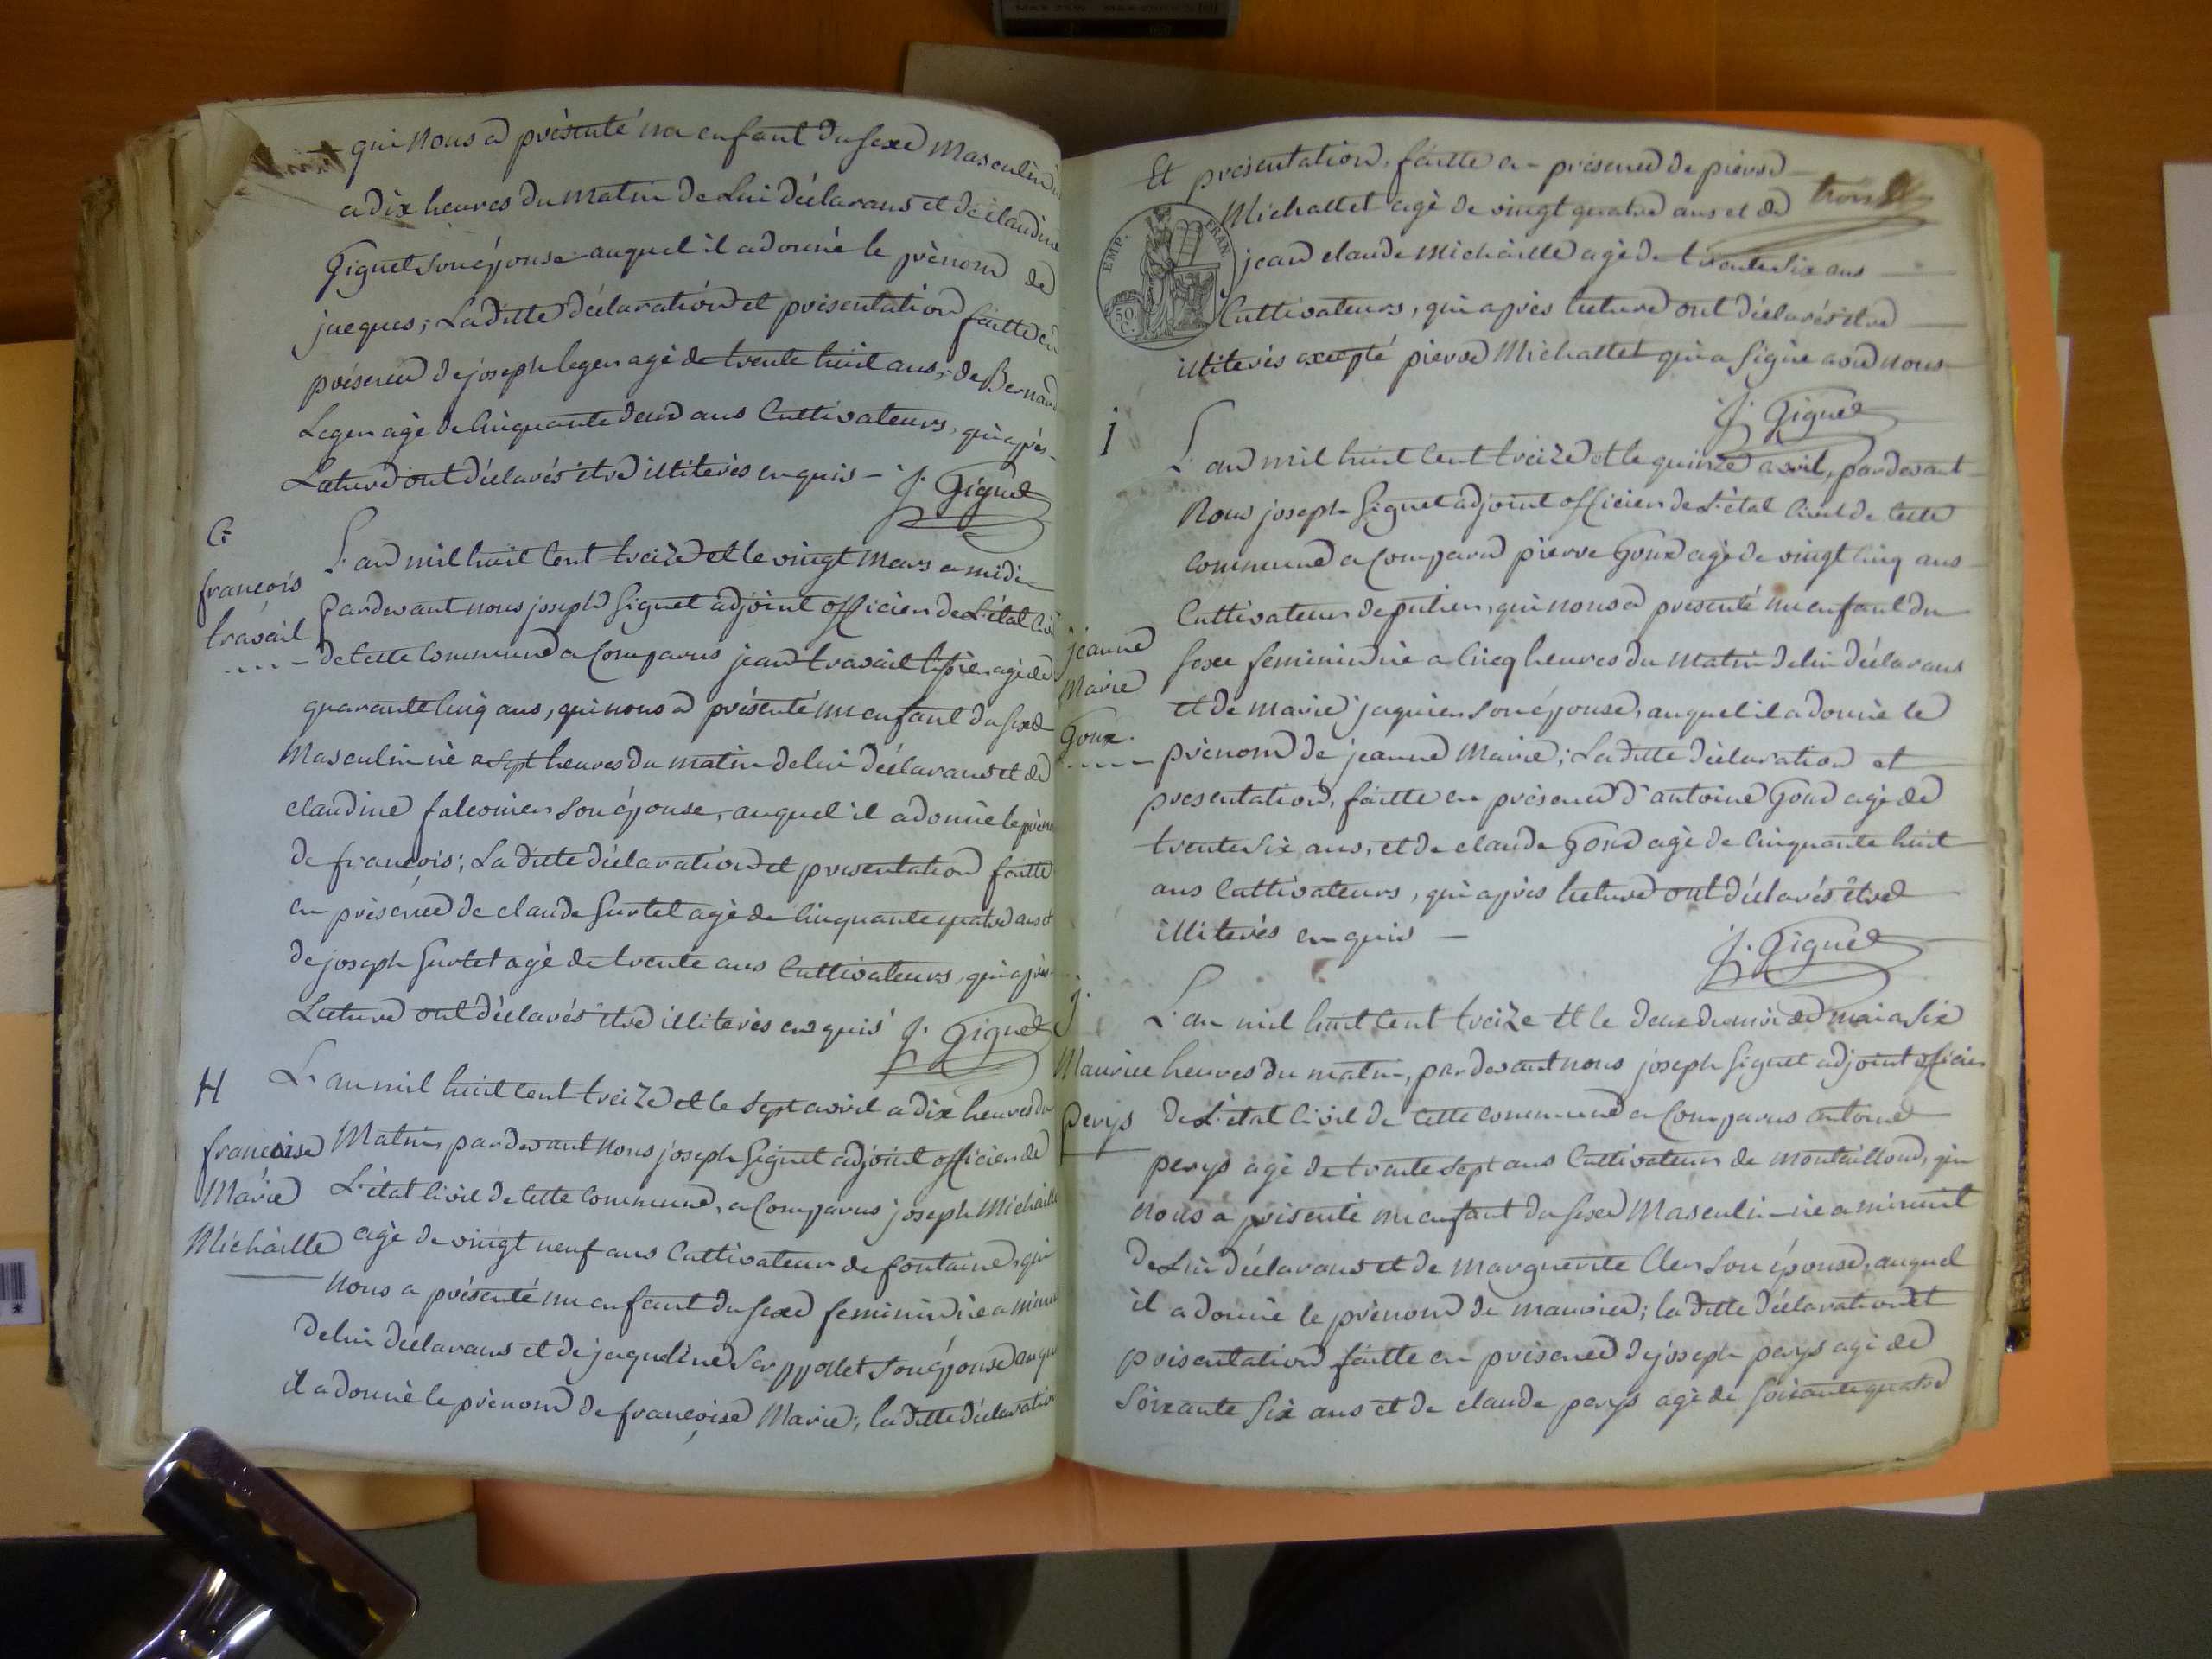 qui nous a présenté un enfant du sexe Masculin né
a dix heures du matin de Lui déclarans et de claudine
Giguet son épouse auquel il a donné le prénom de
jacques; Laditte déclaration et présentation faitte en
présence de joseph leger agé de trente huit ans, de Bernard
Leger agé de Cinquante deux ans Cultivateurs, qui après
Lecture ont déclarés être illiterés enquis - J. Giguet
G
françois
travail
L'an mil huit Cent treize et le vingt Mars a midi
Pardevant nous joseph Giguet adjoint officier de L'état Civil
de Cette Commune a Comparus jean travail tissier agé de
quarante Cinq ans, qui nous a présenté un enfant du sexe
Masculin né a sept heures du matin de lui déclarans et de
claudine falconier son épouse, auquel il a donné le prénom
de françois; La ditte déclaration et presentation faitte
en présence de claude Surtet agé de Cinquante quatre ans et
de joseph Surtet agé de trente ans Cultivateurs, qui après
Lecture ont déclarés être illiterés enquis J. Giguet
H
françoise
Marie
Michaille
L'an mil huit Cent treize et le sept avril a dix heures du
Matin pardevant nous joseph Giguet adjoint officier de
L'état Civil de Cette Commune, a Comparus joseph Michaille
agé de vingt neuf ans Cultivateur de fontaine, qui
nous a présenté un enfant du sexe feminin né a minuit
de lui déclarans et de jaqueline Son épouse auquel
il a donné le prénom de françoise Marie; la ditte déclaration
Et présentation, faitte en présence de pierre
Michattet agé de vingt quatre ans et de
trois
EMP. FRAN.
50. C.
jean claude Michaille agé de trente six ans
Cultivateurs, qui après lecture ont déclarés être
illiterés excepté pierre Michattet qui a signé avec nous
J. Giguet
i
jeanne
Marie
Goux
L'an mil huit Cent treize et le quinze avril, pardevant
Nous joseph Giguet adjoint officier de L'état Civil de Cette
Commune a Comparu pierre Goux agé de vingt Cinq ans
Cultivateur de putier, qui nous a presenté un enfant du
sexe feminin né a Cinq heures du Matin de lui déclarans
et de marie jaquier son épouse, auquel il a donné le
prénom de jeanne Marie; La ditte déclaration et
presentation, faitte en présence d'antoine Goux agé de
trente six ans, et de claude Goux agé de Cinquante huit
ans Cultivateurs, qui après lecture ont déclarés être
illiterés enquis - J. Giguet
j
Maurice
perys
L'an mil huit Cent treize Et le deux du mois de mai a six
heures du matin, pardevant nous joseph Giguet adjoint officier
de L'état Civil de Cette Commune a Comparus antoine
perys agé de trente sept ans Cultivateur de montailloud, qui
nous a présenté un enfant du sexe Masculin né a minuit
de Lui déclarans et de marguerite Cler son épouse, auquel
il a donné le prénom de maurice; la ditte déclaration et
présentation faitte en présence de joseph perys agé de
Soixante six ans et de claude perys agé de soixante quatre